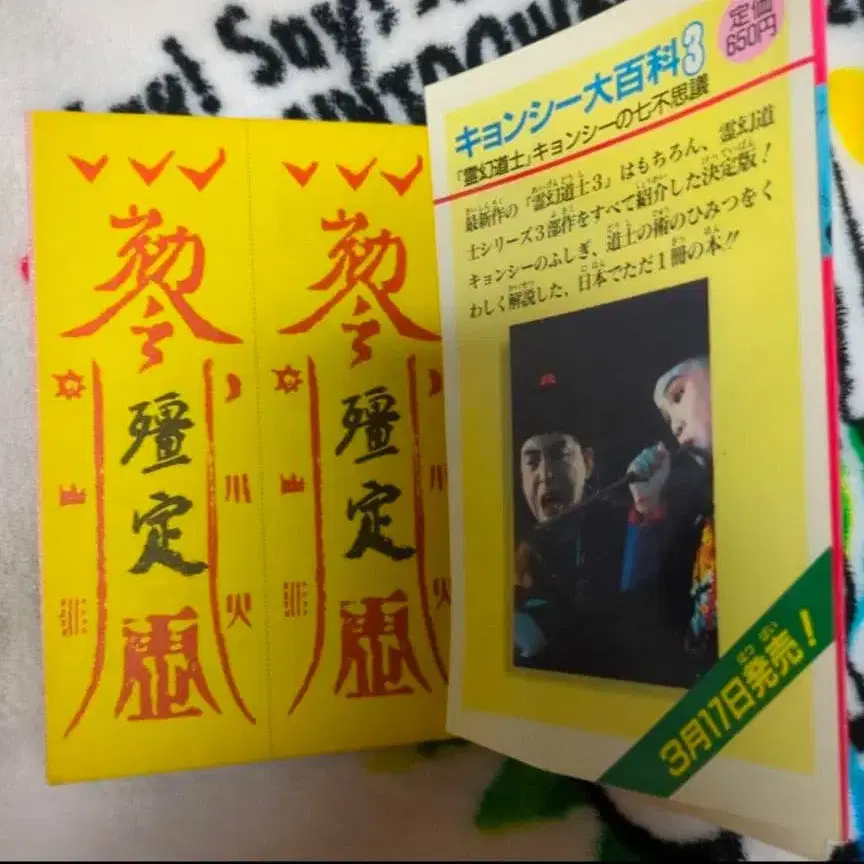 Say!
勅令
殭定
山
川
火
勅令
殭定
山
定価
650円
キョンシー大百科3
『霊幻道士』キョンシーの七不思議
最新作の『霊幻道士3』はもちろん、霊幻道
士シリーズ3部作をすべて紹介した決定版！
キョンシーのふしぎ、道士の術のひみつをく
わしく解説した、日本でただ1冊の本!!
3月17日発売！